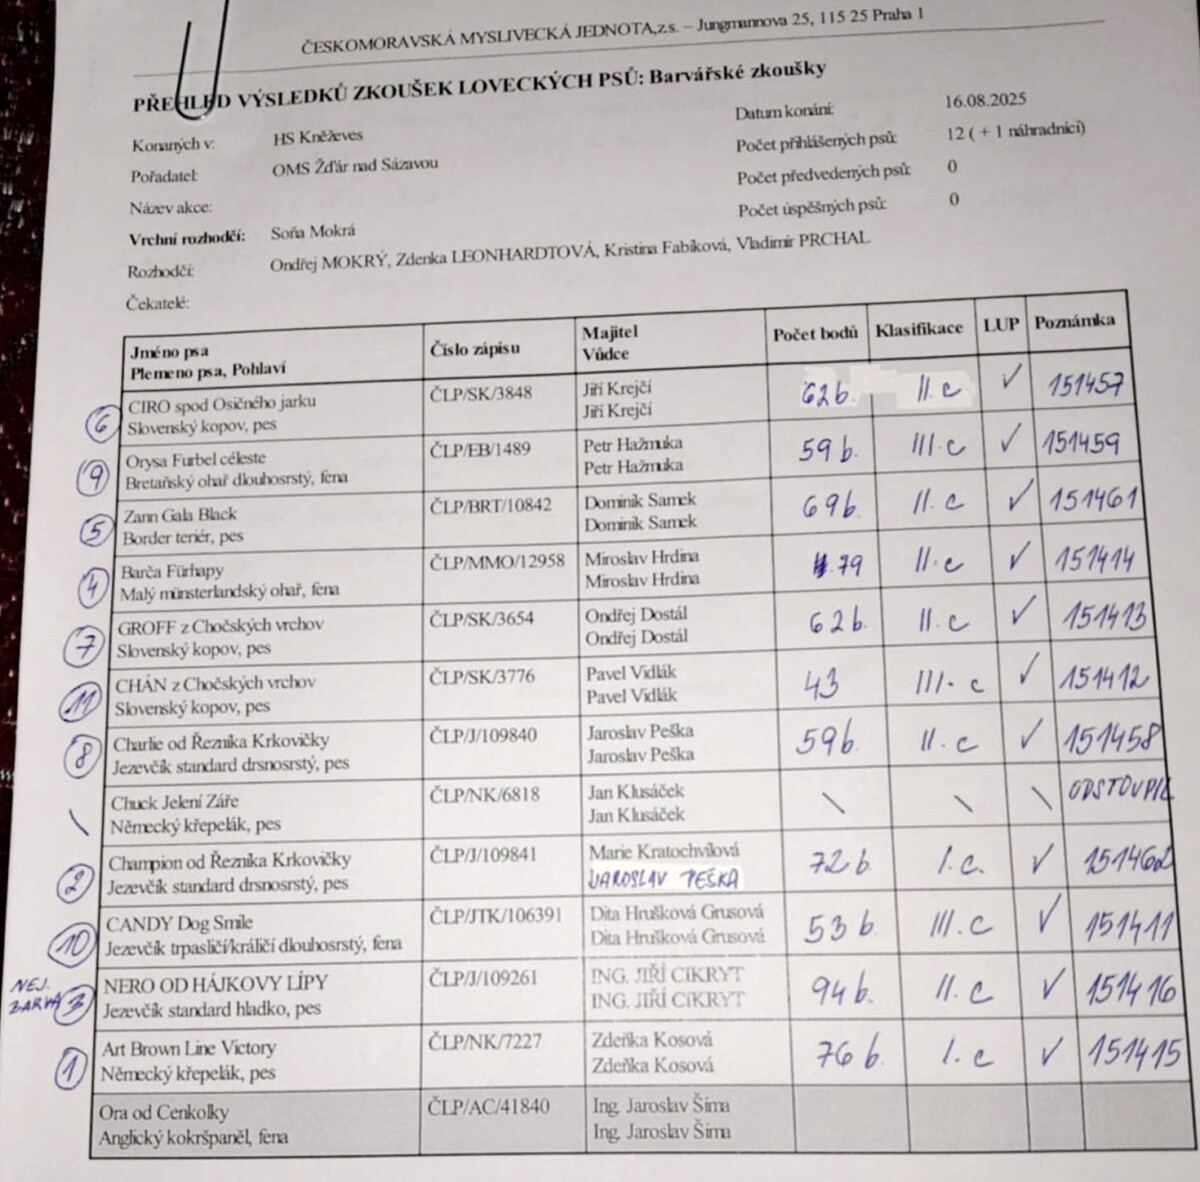 ČESKOMORAVSKÁ MYSLIVECKÁ JEDNOTA,z.s. – Jungmannova 25, 115 25 Praha 1
PŘEHLED VÝSLEDKŮ ZKOUŠEK LOVECKÝCH PSŮ: Barvářské zkoušky
Konaných v: HS Kněževes
Pořadatel: OMS Žďár nad Sázavou
Název akce:
Vrchní rozhodčí: Soňa Mokrá
Rozhodčí: Ondřej MOKRÝ, Zdenka LEONHARDTOVÁ, Kristina Fabíková, Vladimír PRCHAL
Čekatelé:
Datum konání: 16.08.2025
Počet přihlášených psů: 12 ( + 1 náhradníci)
Počet předvedených psů: 0
Počet úspěšných psů: 0
Jméno psa
Plemeno psa, Pohlaví
Číslo zápisu
Majitel
Vůdce
Počet bodů
Klasifikace
LUP
Poznámka
6 CIRO spod Osičného jarku ČLP/SK/3848 Jiří Krejčí 62 b. II. c ✓ 151457
Slovenský kopov, pes Jiří Krejčí
9 Orysa Furbel céleste ČLP/EB/1489 Petr Hažmuka 59 b. III. c ✓ 151459
Bretaňský ohař dlouhosrstý, fena Petr Hažmuka
5 Zann Gala Black ČLP/BRT/10842 Dominik Samek 69 b. II. c ✓ 151461
Border teriér, pes Dominik Samek
4 Barča Fürhapy ČLP/MMO/12958 Miroslav Hrdina 79 II. c ✓ 151414
Malý münsterlandský ohař, fena Miroslav Hrdina
7 GROFF z Chočských vrchov ČLP/SK/3654 Ondřej Dostál 62 b. II. c ✓ 151413
Slovenský kopov, pes Ondřej Dostál
11 CHÁN z Chočských vrchov ČLP/SK/3776 Pavel Vidlák 43 III. c ✓ 151412
Slovenský kopov, pes Pavel Vidlák
8 Charlie od Řezníka Krkovičky ČLP/J/109840 Jaroslav Peška 59 b. II. c ✓ 151458
Jezevčík standard drsnosrstý, pes Jaroslav Peška
\ Chuck Jelení Záře ČLP/NK/6818 Jan Klusáček \ \ \ ODSTOUPIL
Německý křepelák, pes Jan Klusáček
2 Champion od Řezníka Krkovičky ČLP/J/109841 Marie Kratochvílová 72 b. I. c. ✓ 151462
Jezevčík standard drsnosrstý, pes JAROSLAV PEŠKA
10 CANDY Dog Smile ČLP/JTK/106391 Dita Hrušková Grusová 53 b. III. c ✓ 151411
Jezevčík trpasličí/králičí dlouhosrstý, fena Dita Hrušková Grusová
NEJ.
BARVÁŘ
3 NERO OD HÁJKOVY LÍPY ČLP/J/109261 ING. JIŘÍ CIKRYT 94 b. II. c ✓ 151416
Jezevčík standard hladko, pes ING. JIŘÍ CIKRYT
1 Art Brown Line Victory ČLP/NK/7227 Zdeňka Kosová 76 b. I. c ✓ 151415
Německý křepelák, pes Zdeňka Kosová
Ora od Cenkolky ČLP/AC/41840 Ing. Jaroslav Šíma
Anglický kokršpaněl, fena Ing. Jaroslav Šíma